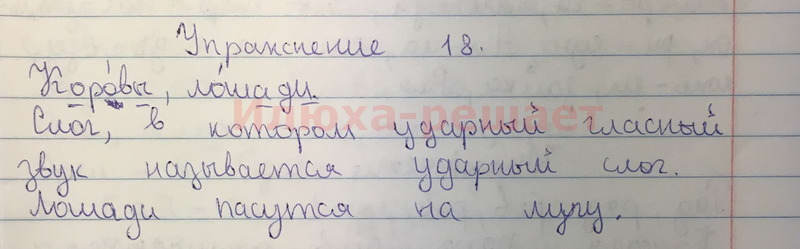 Упражнение 18.
Коро́вы, ло́шади.
Слог, в котором ударный гласный
звук называется ударный слог.
Лошади пасутся на лугу.
Илюха-решает